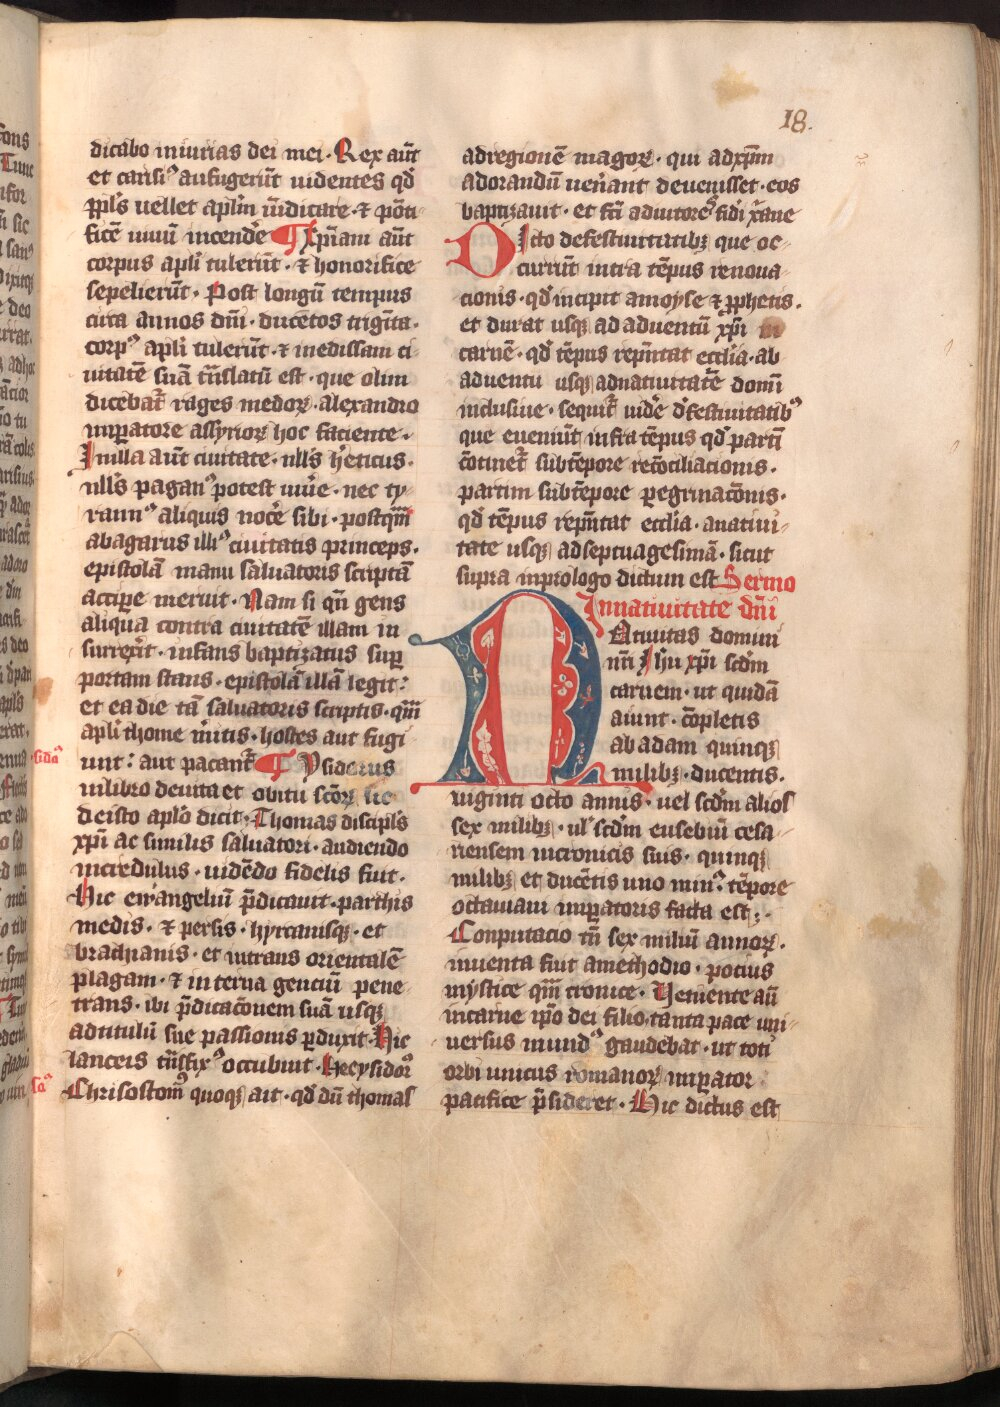 18.
dicabo iniurias dei mei. Rex aūt
et carisiꝰ aufugerūt uidentes qđ
ppl̄s uellet apl̄m uīdicare ⁊ pōti
ficē uiuū incend̄e ¶ Xp̄iani aūt
corpus apl̄i tulerūt. ⁊ honorifice
sepelierūt. Post longū tempus
circa annos dn̄i. ducētos trigīta.
corpꝰ apl̄i tulerūt. ⁊ in edissam ci-
uitatē suā trāslatū est. que olim
dicebat᷑ rages medoꝝ. alexandro
imꝑatore assyrioꝝ hoc faciente.
In illa aūt ciuitate. nll̄s h̄eticus.
nll̄s paganꝰ potest uiūe. nec ty-
rannꝰ aliquis nocē sibi. postqm̄
abagarus illiꝰ ciuitatis princeps.
epistolā manu saluatoris scriptā
accipe meruit. Nam si qn̄ gens
aliqua contra ciuitatē illam in
surrex̄it. infans baptizatus suꝑ
portam stans. epistolā illā legit:
et ea die tā saluatoris scriptis. qm̄
apl̄i thome m̄itis. hostes aut fugi
unt: aut pacant᷑ ¶ Ysiderus
in libro de uita et obitu sc̄oꝝ sic
de isto apl̄o dicit. Thomas discipl̄s
xp̄i ac similis saluatori. audiendo
incredulus. uidēdo fidelis fuit.
Hic ewāngeliū p̄dicauit. parthis
medis. ⁊ persis. hyrcanisqꝫ. et
brachianis. et intrans orientalē
plagam. ⁊ in terna gentiū pene
trans. ibi p̄dicac̄onem suā usqꝫ
ad titulū sue passionis ꝑduxit. Hic
lanceis trāsfixꝰ occubuit. Hec ysidorꝰ
Chrisostomꝰ quoqꝫ ait. qđ dū thomas
ysidꝰ
ad regionē magoꝝ. qui ad xp̄m
adorandū uen̄ant deuenisset. eos
baptizauit. et fc̄i adiutoresꝰ fidi xāne
Dicto de festiuitatibꝫ que oc-
currūt intra tēpus renoua-
cionis. qđ incipit a moyse ⁊ ꝓphetis.
et durat usqꝫ ad aduentū xp̄i in
carnē. qđ tēpus rep̄ntat eccl̄ia. ab
aduentu usqꝫ ad natiuitatē domī
inclusiue. sequit᷑ uid̄e d̄ festiuitatibꝰ
que eueniūt infra tēpus qđ partī
cōtinet᷑ sub tēpore recōciliacionis.
partim sub tēpore peregrinac̄onis.
qđ tēpus rep̄ntat eccl̄ia. a natiui-
tate usqꝫ ad septuagesimā. sicut
supra in prologo dictum est Sermo
In natiuitate dn̄i
Natiuitas domini
nr̄i Ihū xp̄i scd̄m
carnem. ut quidā
aiunt. cōpletis
ab adam quinqꝫ
milibꝫ. ducentis.
uiginti octo annis. uel scd̄m alios
sex milibꝫ. ul̄ scd̄m eusebiū cesa-
riensem in cronicis suis. quinqꝫ
milibꝫ et ducētis uno minꝰ. tēpore
octauiani imꝑatoris facta est;.
Conputacio tn̄ sex miliū annoꝝ.
inuenta fuit a methodio. potius
mystice qm̄ cronice. Veniente aū
in carne ip̄o dei filio. tanta pace uni-
uersus mundꝰ gaudebat. ut toti
orbi unicus romanoꝝ imꝑator
pacifice p̄sideret. Hic dictus est